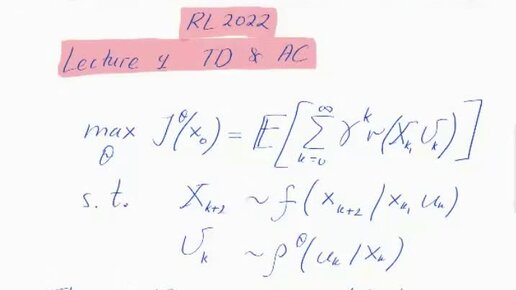 RL 2022
Lecture 4 TD & AC
max_θ J^θ(x_0) = 𝔼[∑_{k=0}^{∞} γ^k r(X_k, U_k)]
s.t. X_{k+1} ~ f(x_{k+1} | x_k, u_k)
U_k ~ ρ^θ(u_k | x_k)